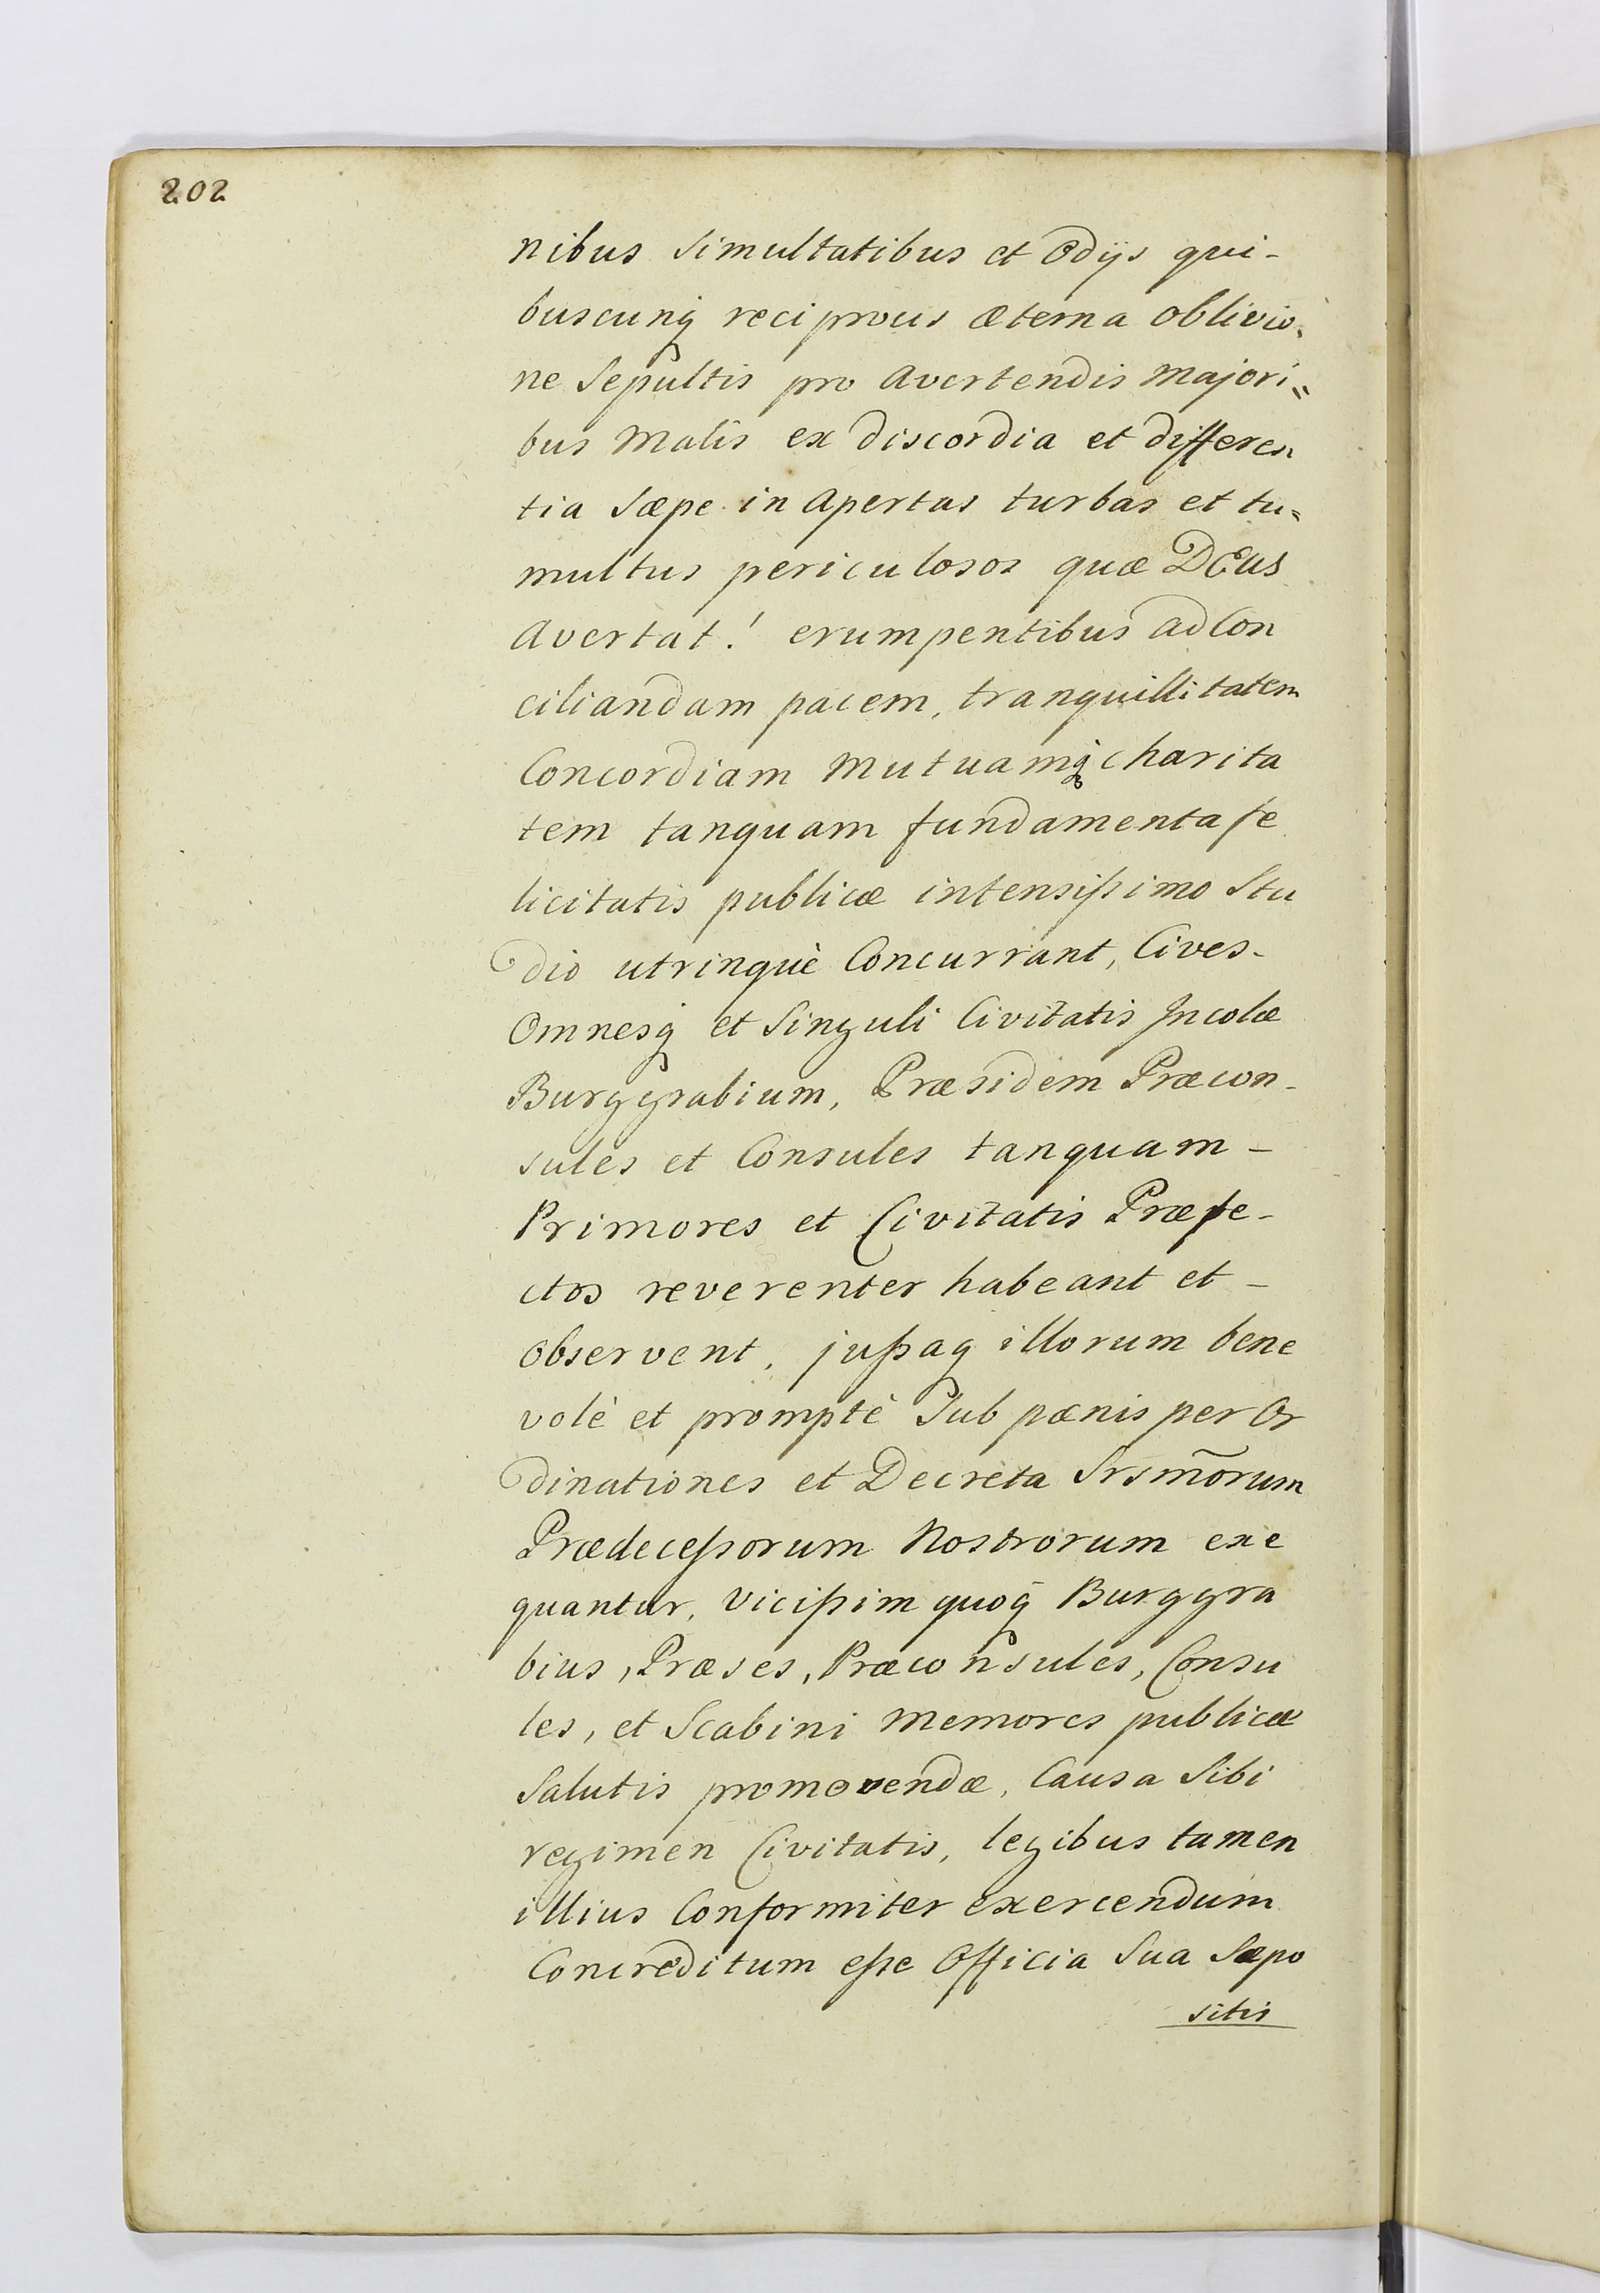 202
nibus simultatibus et Odijs qui-
buscunq reciprocis æterna oblivio=
ne Sepultis pro Avertendis Majori=
bus Malis ex discordia et differen
tia Sæpe in Apertas turbas et tu=
multus periculosos quæ DEus
Avertat! erumpentibus ad Con
ciliandam pacem, tranquillitatem
Concordiam Mutuamq charita
tem tanquam fundamenta fe
licitatis publicæ intensissimo Stu
dio utrinquè Concurrant, Cives-
Omnesq et Singuli Civitatis Incolæ
Burggrabium, Præsidem Præcon-
sules et Consules tanquam-
Primores et Civitatis Præfe-
ctos reverenter habeant et-
Observent, jussaq illorum bene
volè et promptè Sub pænis per Or
dinationes et Decreta Srsm̃orum
Prædecessorum Nostrorum exe
quantur, Vicissim quoq Burggra
bius, Præses, Præconsules, Consu
les, et Scabini Memores publicæ
Salutis promovendæ, Causa Sibi
regimen Civitatis, legibus tamen
illius Conformiter exercendum
Concreditum esse Officia Sua Sæpo
sitis